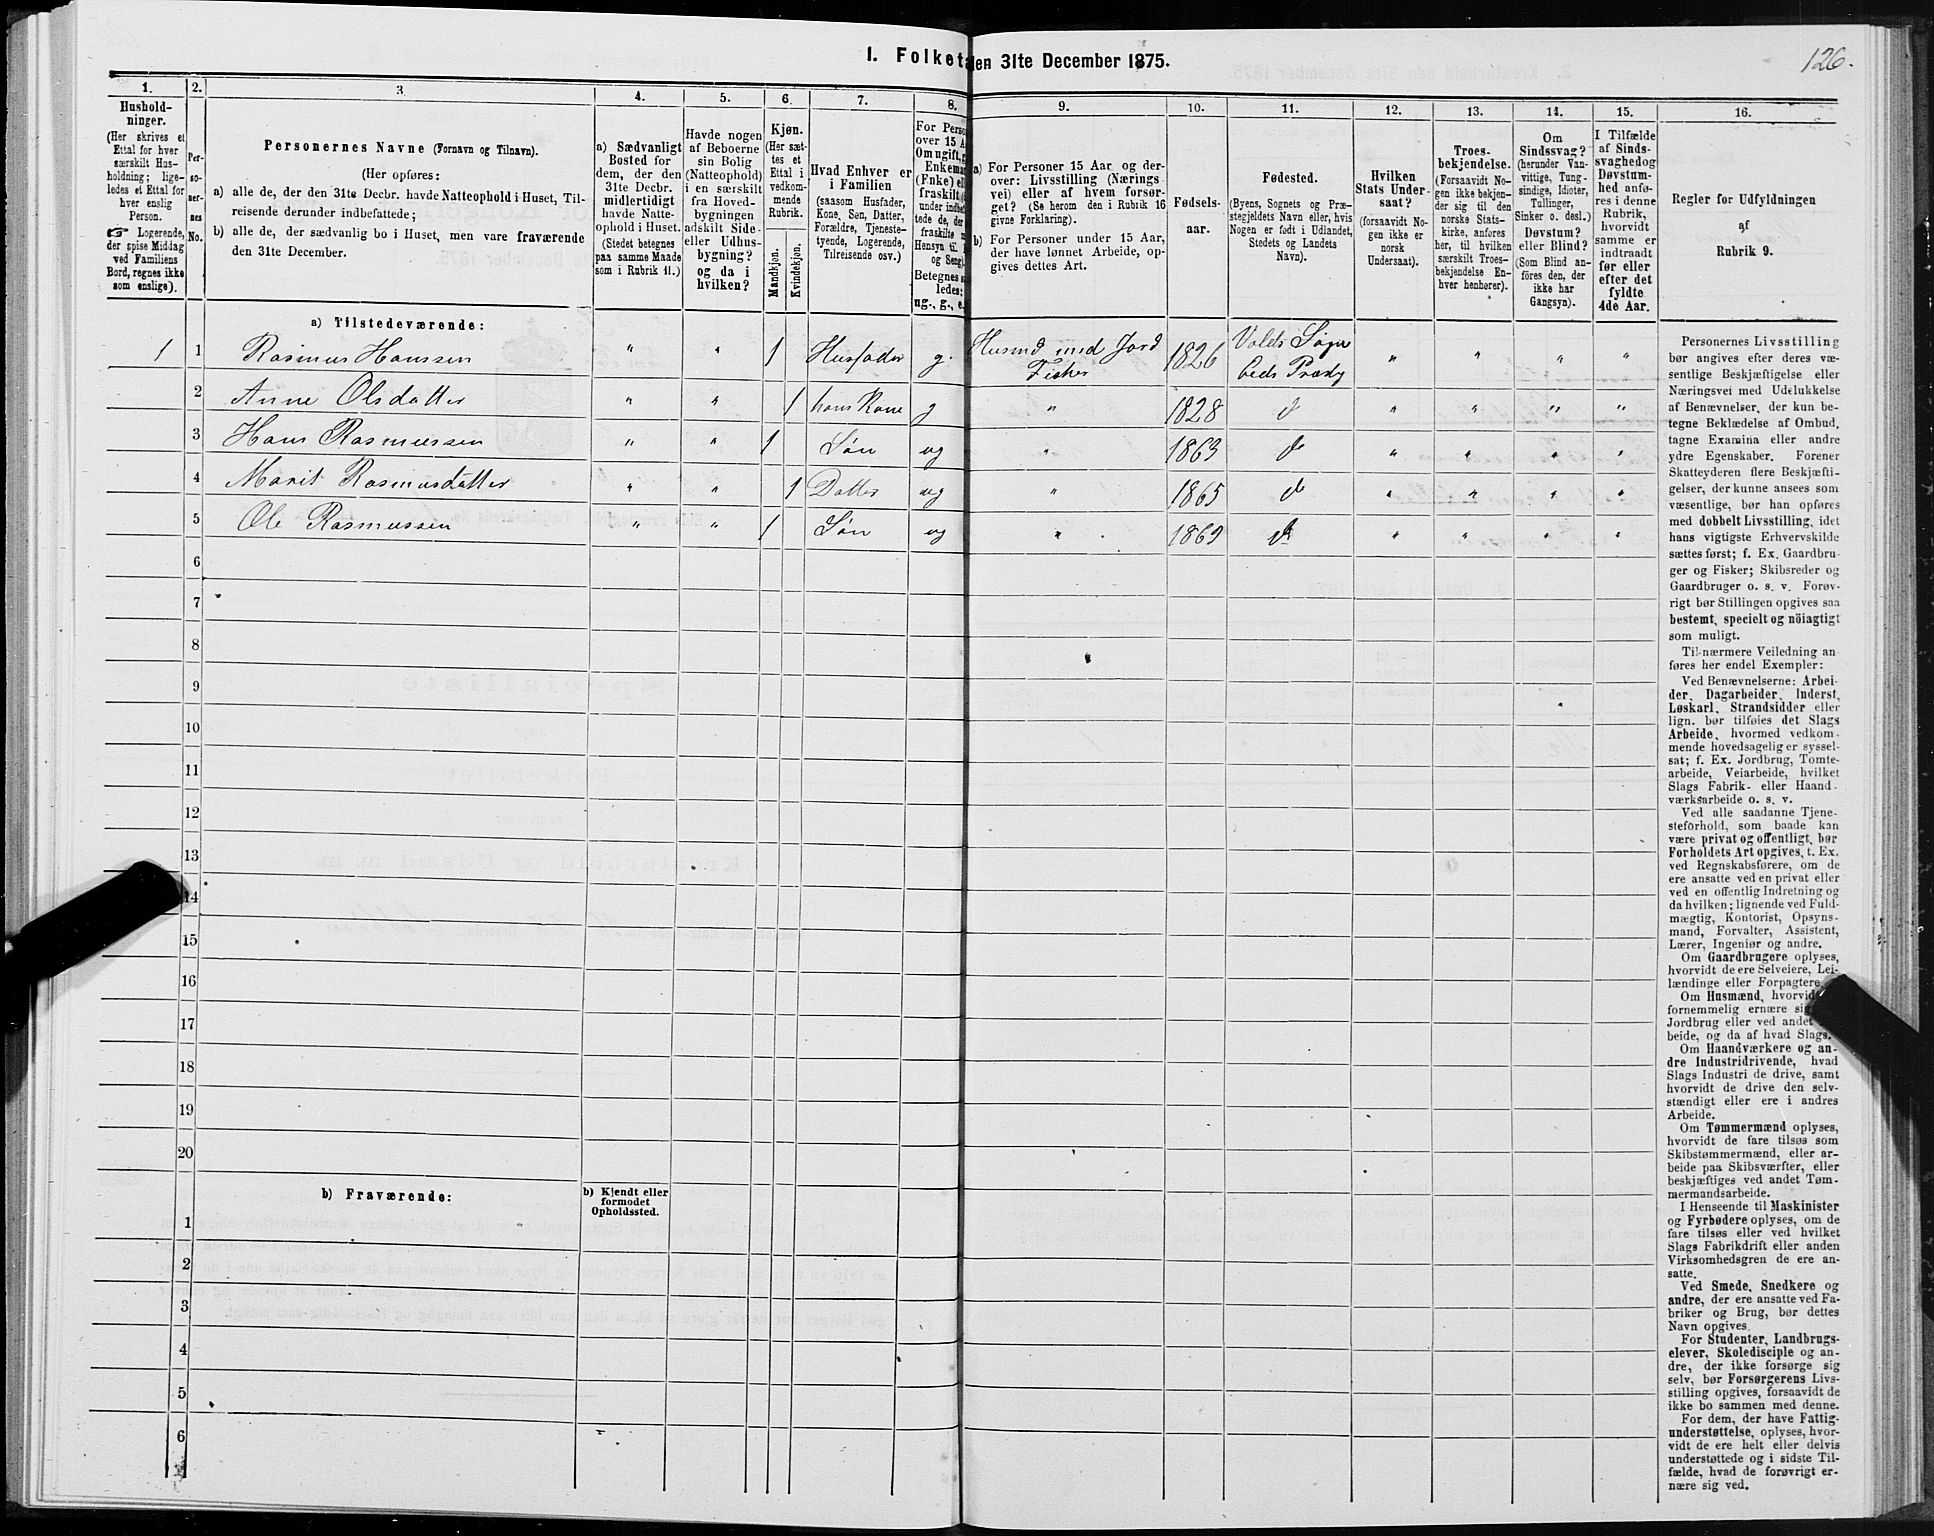 I. Folketa den 31te December 1875.
126.
1.
2.
3.
4.
5.
6.
7.
8.
9.
10.
11.
12.
13.
14.
15.
16.
Hushold-
ninger.
(Her skrives et
Ettal for hver
særskilt Hus-
holdning; lige-
ledes et Ettal for
hver enslig
Person.
☞ Logerende,
der spise Middag
ved Familiens
Bord, regnes ikke
som enslige).
Per-
so-
ner-
nes
No.
Personernes Navne (Fornavn og Tilnavn).
(Her opføres:
a) alle de, der den 31te Decbr. havde Natteophold i Huset, Til-
reisende derunder indbefattede;
b) alle de, der sædvanlig bo i Huset, men vare fraværende
den 31te December.
a) Sædvanligt
Bosted for
dem, der den
31te Decbr.
midlertidigt
havde Natte-
ophold i Huset.
(Stedet betegnes
paa samme Maade
som i Rubrik 11.)
Havde nogen
af Beboerne
sin Bolig
(Natteophold)
i en særskilt
fra Hoved-
bygningen
adskilt Side-
eller Udhus-
bygning?
og da i
hvilken?
Kjøn.
(Her sæt-
tes et
Ettal i
vedkom-
mende
Rubrik.
Mandkjøn.
Kvindekjøn.
Hvad Enhver er
i Familien
(saasom Husfader,
Kone, Søn, Datter,
Forældre, Tjeneste-
tyende, Logerende,
Tilreisende osv.)
For Perso
over 15 A
Om ugift, g
Enkeman
(Enke) ell
fraskilt (
under indbe
tede de, der
fraskilte m
Hensyn til
og Seng).
Betegnes s
ledes:
ug., g., e.
a) For Personer 15 Aar og der-
over: Livsstilling (Nærings
vei) eller af hvem forsør-
get? (Se herom den i Rubrik 16
givne Forklaring).
b) For Personer under 15 Aar,
der have lønnet Arbeide, op-
gives dettes Art.
Fødsels-
aar.
Fødested.
(Byens, Sognets og Præ-
stegjeldets Navn eller, hvis
Nogen er født i Udlandet,
Stedets og Landets
Navn).
Hvilken
Stats Under-
saat?
(forsaavidt No-
gen ikke er
norsk
Undersaat).
Troes-
bekjendelse.
(Forsaavidt No-
gen ikke bekjen-
der sig til den
norske Stats-
kirke, anføres
her, til hvilken
særskilt Troes-
bekjendelse En-
hver henhører).
Om
Sindssvag?
(herunder Van-
vittige, Tung-
sindige, Idioter,
Tullinger,
Sinker o. desl.)
Døvstum?
eller Blind?
(Som Blind an-
føres den, der
ikke har
Gangsyn).
I Tilfælde
af Sinds-
svaghed og
Døvstum-
hed anfø-
res i denne
Rubrik,
hvorvidt
samme er
indtraadt
før eller
efter det
fyldte
4de Aar.
Regler for Udfyldningen
af
Rubrik 9.
a) Tilstedeværende:
1 1 Rasmus Hanssen " " 1 Husfader g. Husmd med Jord Fisker 1826 Volds Sogn Eeds Præstg " " " "
2 Anne Olsdatter " " 1 hans Kone g " 1828 d " " " "
3 Hans Rasmussen " " 1 Søn ug " 1863 d " " " "
4 Marit Rasmusdatter " " 1 Datter ug " 1865 d " " " "
5 Ole Rasmussen " " 1 Søn ug " 1869 d " " " "
6
7
8
9
10
11
12
13
14
15
16
17
18
19
20
b) Fraværende:
b) Kjendt eller
formodet
Opholdssted.
1
2
3
4
5
6
Personernes Livsstilling
bør angives efter deres væ-
sentlige Beskjæftigelse eller
Næringsvei med Udelukkelse
af Benævnelser, der kun be-
tegne Beklædelse af Ombud,
tagne Examina eller andre
ydre Egenskaber. Forener
Skatteyderen flere Beskjæfti-
gelser, der kunne ansees som
væsentlige, bør han opføres
med dobbelt Livsstilling, idet
hans vigtigste Erhvervskilde
sættes først; f. Ex. Gaardbru-
ger og Fisker; Skibsreder og
Gaardbruger o. s. v. Forøv-
rigt bør Stillingen opgives saa
bestemt, specielt og nöiagtigt
som muligt.
Til nærmere Veiledning an-
føres her endel Exempler:
Ved Benævnelserne: Arbei-
der, Dagarbeider, Inderst,
Løskarl, Strandsidder eller
lign. bør tilføies det Slags
Arbeide, hvormed vedkom-
mende hovedsagelig er syssel-
sat; f. Ex. Jordbrug, Tomte-
arbeide, Veiarbeide, hvilket
Slags Fabrik- eller Haand-
værksarbeide o. s. v.
Ved alle saadanne Tjene-
steforhold, som baade kan
være privat og offentligt, bør
Forholdets Art opgives, t. Ex.
ved Regnskabsførere, om de
ere ansatte ved en privat eller
ved en offentlig Indretning og
da hvilken; lignende ved Fuld-
mægtig, Kontorist, Opsyns-
mand, Forvalter, Assistent,
Lærer, Ingeniør og andre.
Om Gaardbrugere oplyses,
hvorvidt de ere Selveiere, Lei-
lændinge eller Forpagtere.
Om Husmænd, hvorvidt
fornemmelig ernære si
Jordbrug eller ved andet
beide, og da af hvad Slags.
Om Haandværkere og an-
dre Industridrivende, hvad
Slags Industri de drive, samt
hvorvidt de drive den selv-
stændigt eller ere i andres
Arbeide.
Om Tømmermænd oplyses,
hvorvidt de fare tilsøs som
Skibstømmermænd, eller ar-
beide paa Skibsværfter, eller
beskjæftiges ved andet Tøm-
mermandsarbeide.
I Henseende til Maskinister
og Fyrbødere oplyses, om de
fare tilsøs eller ved hvilket
Slags Fabrikdrift eller anden
Virksomhedsgren de ere an-
satte.
Ved Smede, Snedkere og
andre, der ere ansatte ved Fa-
briker og Brug, bør dettes
Navn opgives.
For Studenter, Landbrugs-
elever, Skoledisciple og an-
dre, der ikke forsørge sig
selv, bør Forsørgerens Livs-
stilling opgives, forsaavidt de
ikke bo sammen med denne.
For dem, der have Fattig-
understøttelse, oplyses, hvor-
vidt de ere helt eller delvis
understøttede og i sidste Til-
fælde, hvad de forøvrigt er-
nære sig ved.